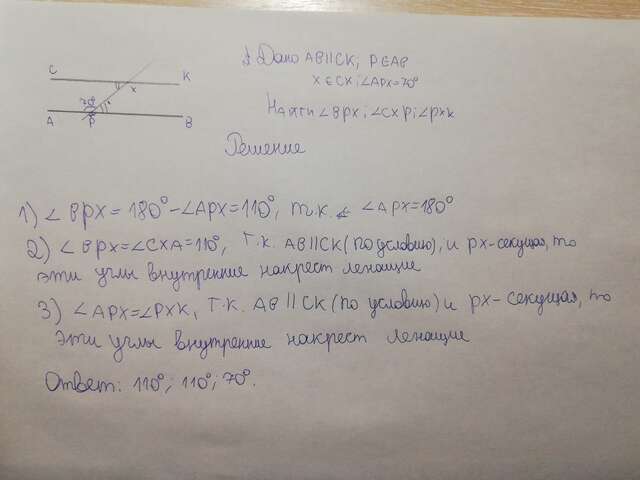 Дано AB||CK; P∈AB
X∈CK; ∠APX=70°
Найти ∠BPX; ∠CXP; ∠PXK
C
K
x
70°
A
P
B
Решение
1) ∠BPX = 180° - ∠APX = 110°, т.к. ∠APX = 180°
2) ∠BPX = ∠CXA = 110°, т.к. AB||CK (по условию), и PX - секущая, то
эти углы внутренние накрест лежащие
3) ∠APX = ∠PXK, т.к. AB || CK (по условию) и PX - секущая, то
эти углы внутренние накрест лежащие
Ответ: 110°; 110°; 70°.